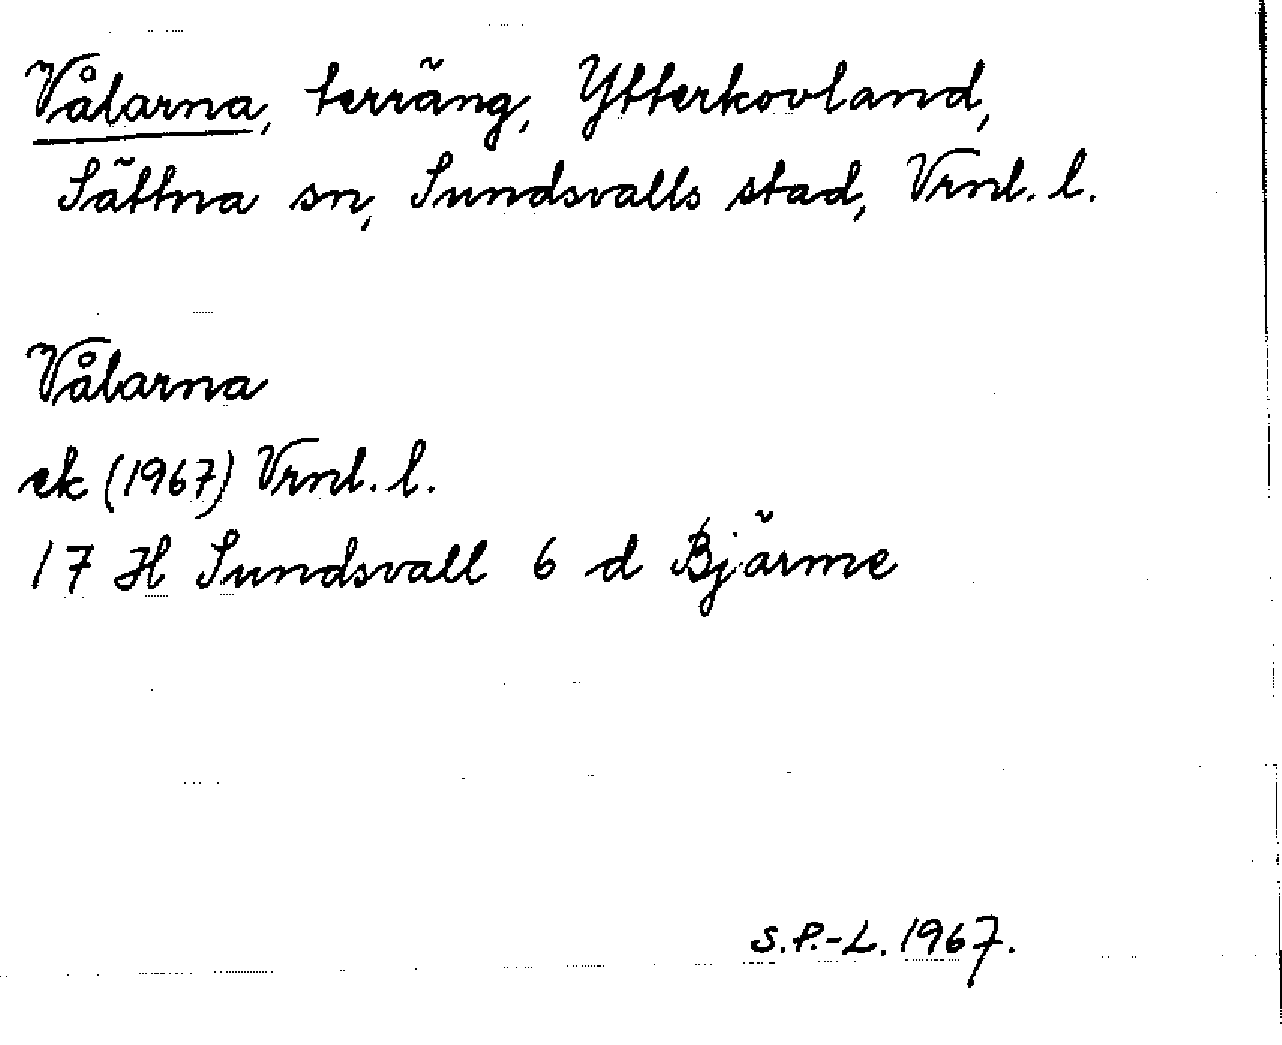 Vålarna, terräng, Ytterkovland,
Sättna sn, Sundsvalls stad, Vrnl. l.
Vålarna
ek (1967) Vrnl. l.
17 H Sundsvall 6 d Bjärme
S.P.-L. 1967.